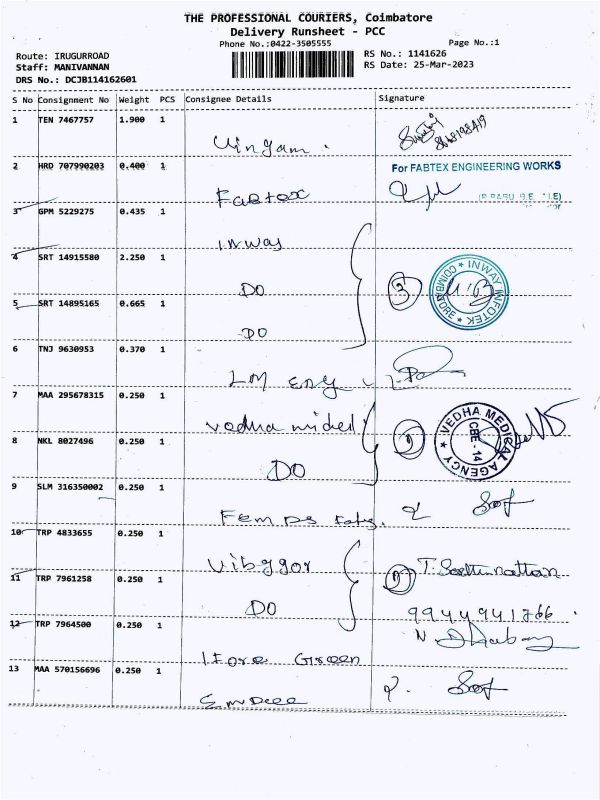 THE PROFESSIONAL COURIERS, Coimbatore
Delivery Runsheet - PCC
Phone No.:0422-3505555
Page No.:1
Route: IRUGURROAD
RS No.: 1141626
Staff: MANIVANNAN
RS Date: 25-Mar-2023
DRS No.: DCJB114162601
S No Consignment No Weight PCS Consignee Details Signature
1 TEN 7467757 1.900 1
Uingam.
2 HRD 707990203 0.400 1
For FABTEX ENGINEERING WORKS
Fabtex
3 GPM 5229275 0.435 1
Inway
4 SRT 14915580 2.250 1
DO
3
INWAY INFOTEK COIMBATORE
5 SRT 14895165 0.665 1
DO
6 TNJ 9630953 0.370 1
LM Eng
7 MAA 295678315 0.250 1
Vedha
VEDHA MEDICAL AGENCY
CBE - 14
8 NKL 8027496 0.250 1
DO
9 SLM 316350002 0.250 1
10 TRP 4833655 0.250 1
11 TRP 7961258 0.250 1
DO
12 TRP 7964500 0.250 1
Green
13 MAA 570156696 0.250 1